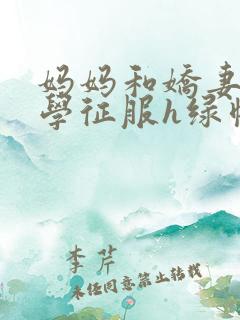 妈妈和嬌妻
學征服h绿
李芹
未经同意禁止转载